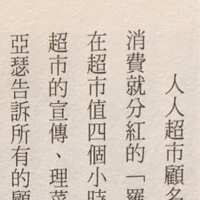 人人超市顧名
消費就分紅的「羅
在超市值四個小時
超市的宣傳、理菜
亞瑟告訴所有的顧